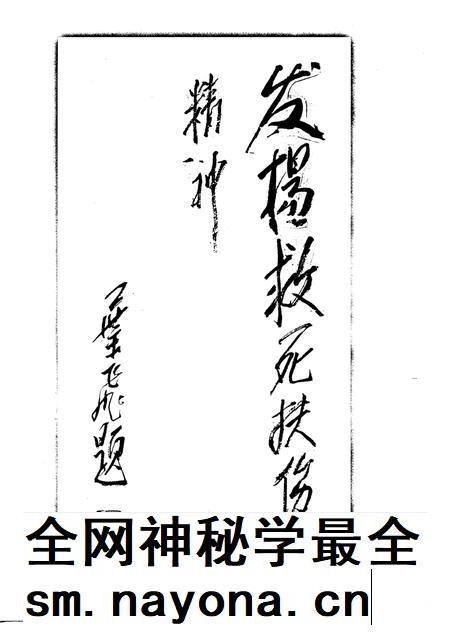 发揚救死扶伤
精神
葉飛題
全网神秘学最全
sm.nayona.cn